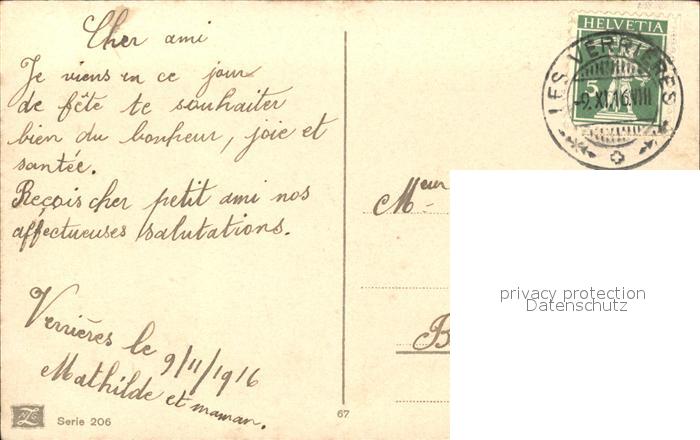 Cher ami
Je viens en ce jour
de fête te souhaiter
bien du bonheur, joie et
santée.
Reçois cher petit ami nos
affectueuses salutations.
Verrières le 9/11/1916
Mathilde et maman.
Serie 206
67
HELVETIA
5
LES VERRIÈRES
-9.XI.16.VIII
Meur
B
privacy protection
Datenschutz